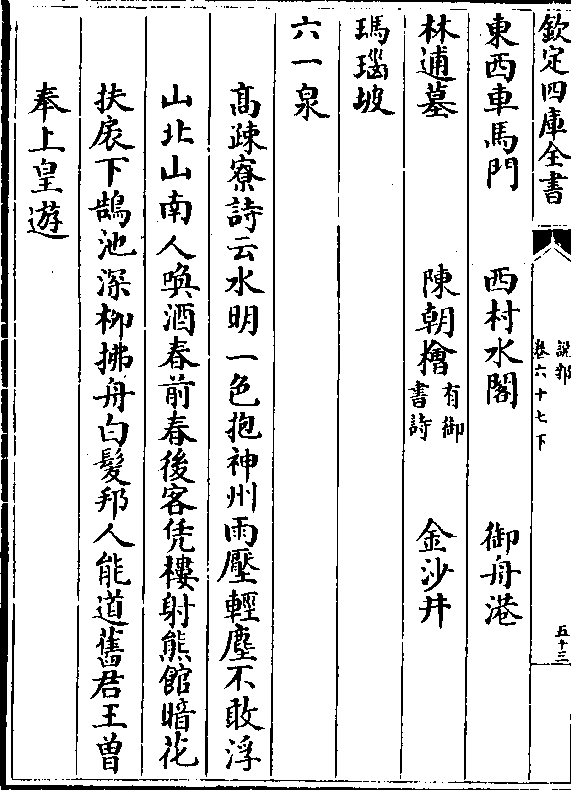 欽定四庫全書
說郛
卷六十七下
五十三
東西車馬門　西村水閣　御舟港
林逋墓　陳朝檜有御書詩　金沙井
瑪瑙坡
六一泉
高疎寮詩云水明一色抱神州雨壓輕塵不敢浮
山北山南人喚酒春前春後客凭樓射熊館暗花
扶扆下鵠池深柳拂舟白髮邦人能道舊君王曾
奉上皇遊